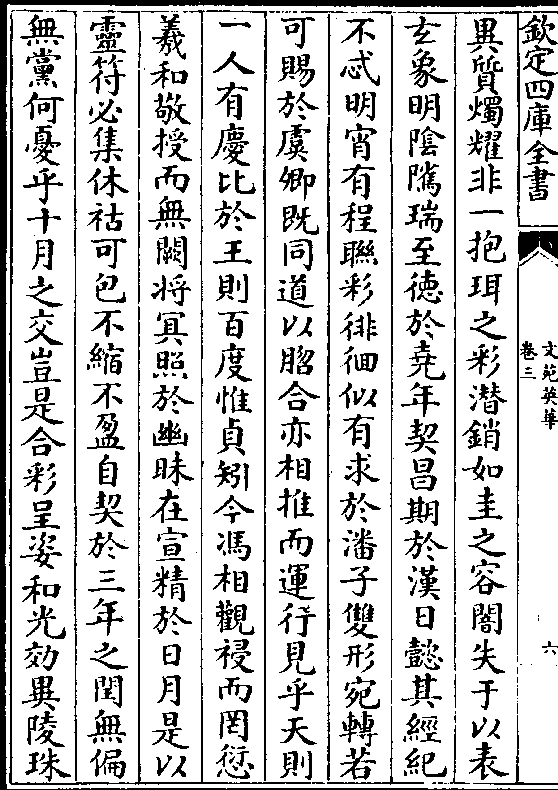 欽定四庫全書
文苑英華
卷三
六
異質燭耀非一抱珥之彩潜銷如圭之容闇失于以表
玄象明陰隲瑞至德於堯年契昌期於漢日懿其經紀
不忒明宵有程聯彩徘徊似有求於潘子雙形宛轉若
可賜於虞卿既同道以脗合亦相推而運行見乎天則
一人有慶比於王則百度惟貞矧今馮相觀祲而罔愆
羲和敬授而無闕将冥照於幽昧在宣精於日月是以
靈符必集休祜可包不縮不盈自契於三年之閏無偏
無黨何憂乎十月之交豈是合彩呈姿和光効異陵珠